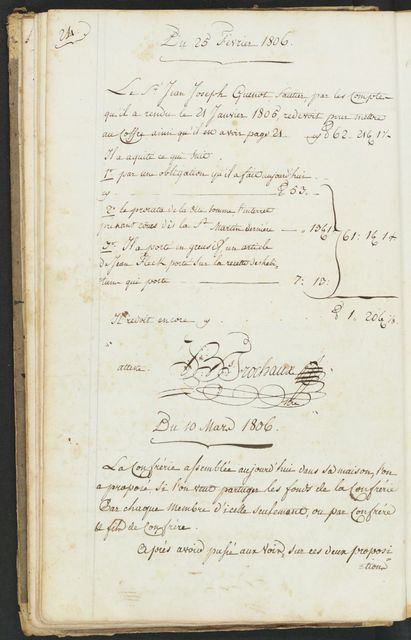 24
Du 25 Fevrier 1806.
Le Sr. Jean Joseph Guenot Sautier, par les Comptes
qu'il a rendu le 21 Janvier 1806, redevoit pour mettre
au Coffre ainsi qu'il en a voir page 21 62 .. 2
Il a aquité ce qui suit.
1º par une obligation qu'il a fait aujourd'hui
53.
2º le prorata de la dite somme l'interet
prenant cours dès la St. Martin derniere
3º Il a porté un article
de Jean porté sur la recette
l'une qui porte 7: 13:
Il redoit encore £ 1.
atteste. Trochaux
Du 10 Mars 1806.
La Confrérie assemblée aujourd'hui dans sa maison, l'on
a proposé si l'on veut partager les fonds de la Confrérie
Par chaque Membre d'icelle seulement, ou par Confrère
et fils de Confrère.
Après avoir passé aux Voix, sur ces deux proposi
=tions